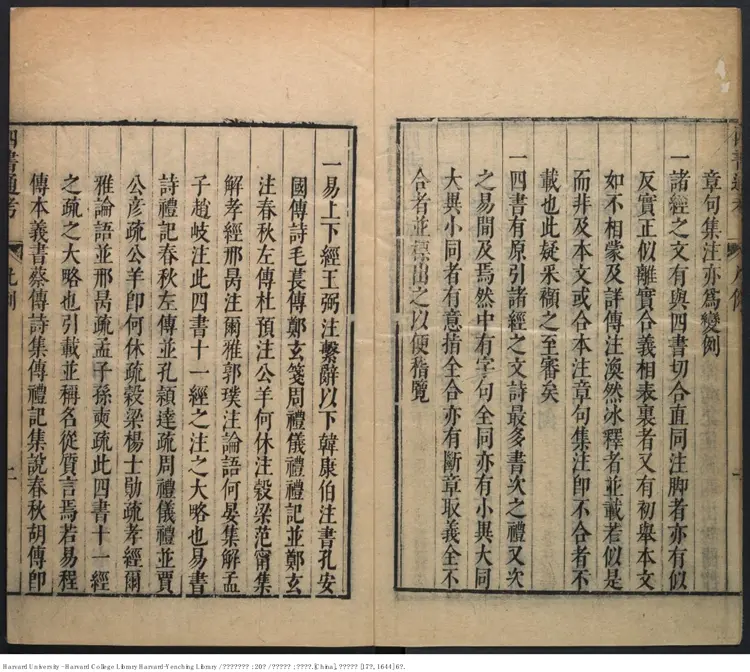 章句集注亦為變例
一諸經之文有與四書切合直同注脚者亦有似
反實正似離實合義相表裏者又有初舉本文
如不相蒙及詳傳注渙然冰釋者並載若似是
而非及本文或合本注章句集注卽不合者不
載也此疑釆穨之至審矣
一四書有原引諸經之文詩最多書次之禮又次
之易間及焉然中有字句全同亦有小異大同
大異小同者有意指全合亦有斷章取義全不
合者並標出之以便稽覽
一易上下經王弼注繫辭以下韓康伯注書孔安
國傳詩毛萇傳鄭玄箋周禮儀禮禮記並鄭玄
注春秋左傳杜預注公羊何休注穀梁范甯集
解孝經邢昺注爾雅郭璞注論語何晏集解孟
子趙岐注此四書十一經之注之大略也易書
詩禮記春秋左傳並孔穎達疏周禮儀禮並賈
公彥疏公羊卽何休疏穀梁楊士勛疏孝經爾
雅論語並邢昺疏孟子孫奭疏此四書十一經
之疏之大略也引載並稱名從質言焉若易程
傳本義書蔡傳詩集傳禮記集說春秋胡傳卽
四書通考
凡例
二
Harvard University - Harvard College Library Harvard-Yenching Library / ??????? ; 20? / ????? ; ????. [China], ????? [17?, 1644] 6?.